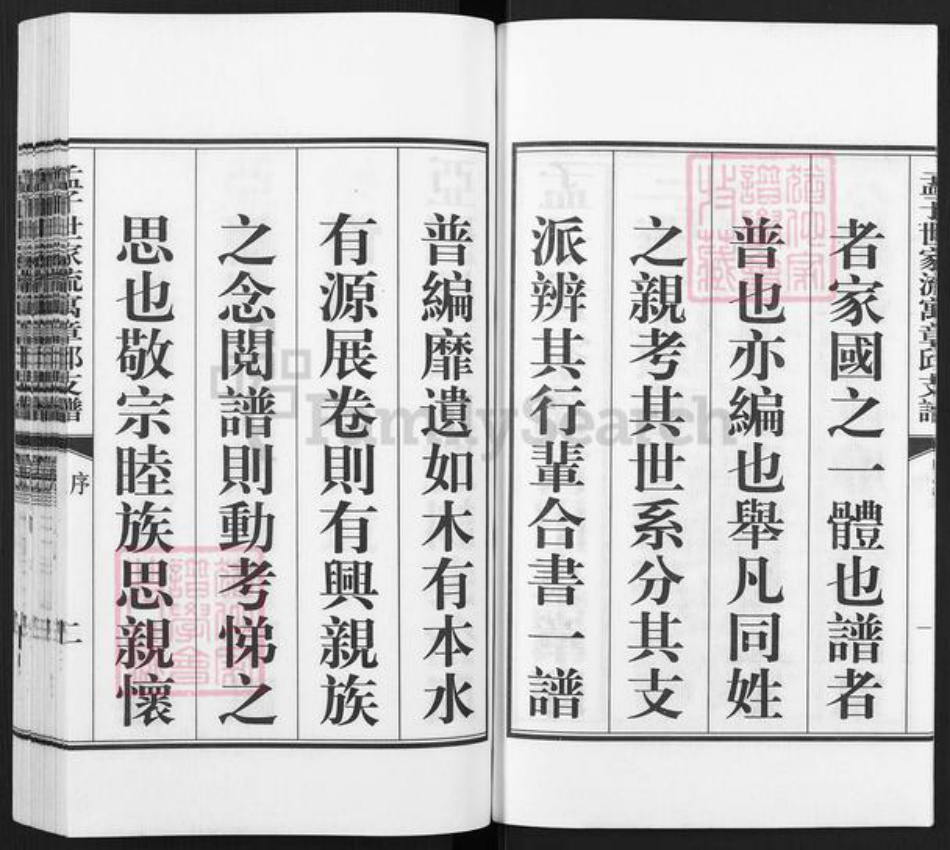 者家國之一體也譜者
普也亦編也舉凡同姓
之親考其世系分其支
派辨其行輩合書一譜
普編靡遺如木有本水
有源展卷則有興親族
之念閱譜則動考悌之
思也敬宗睦族思親懷
孟子世家流寓章邱支譜
序
二
孟子世家流寓章邱支譜
一
FamilySearch